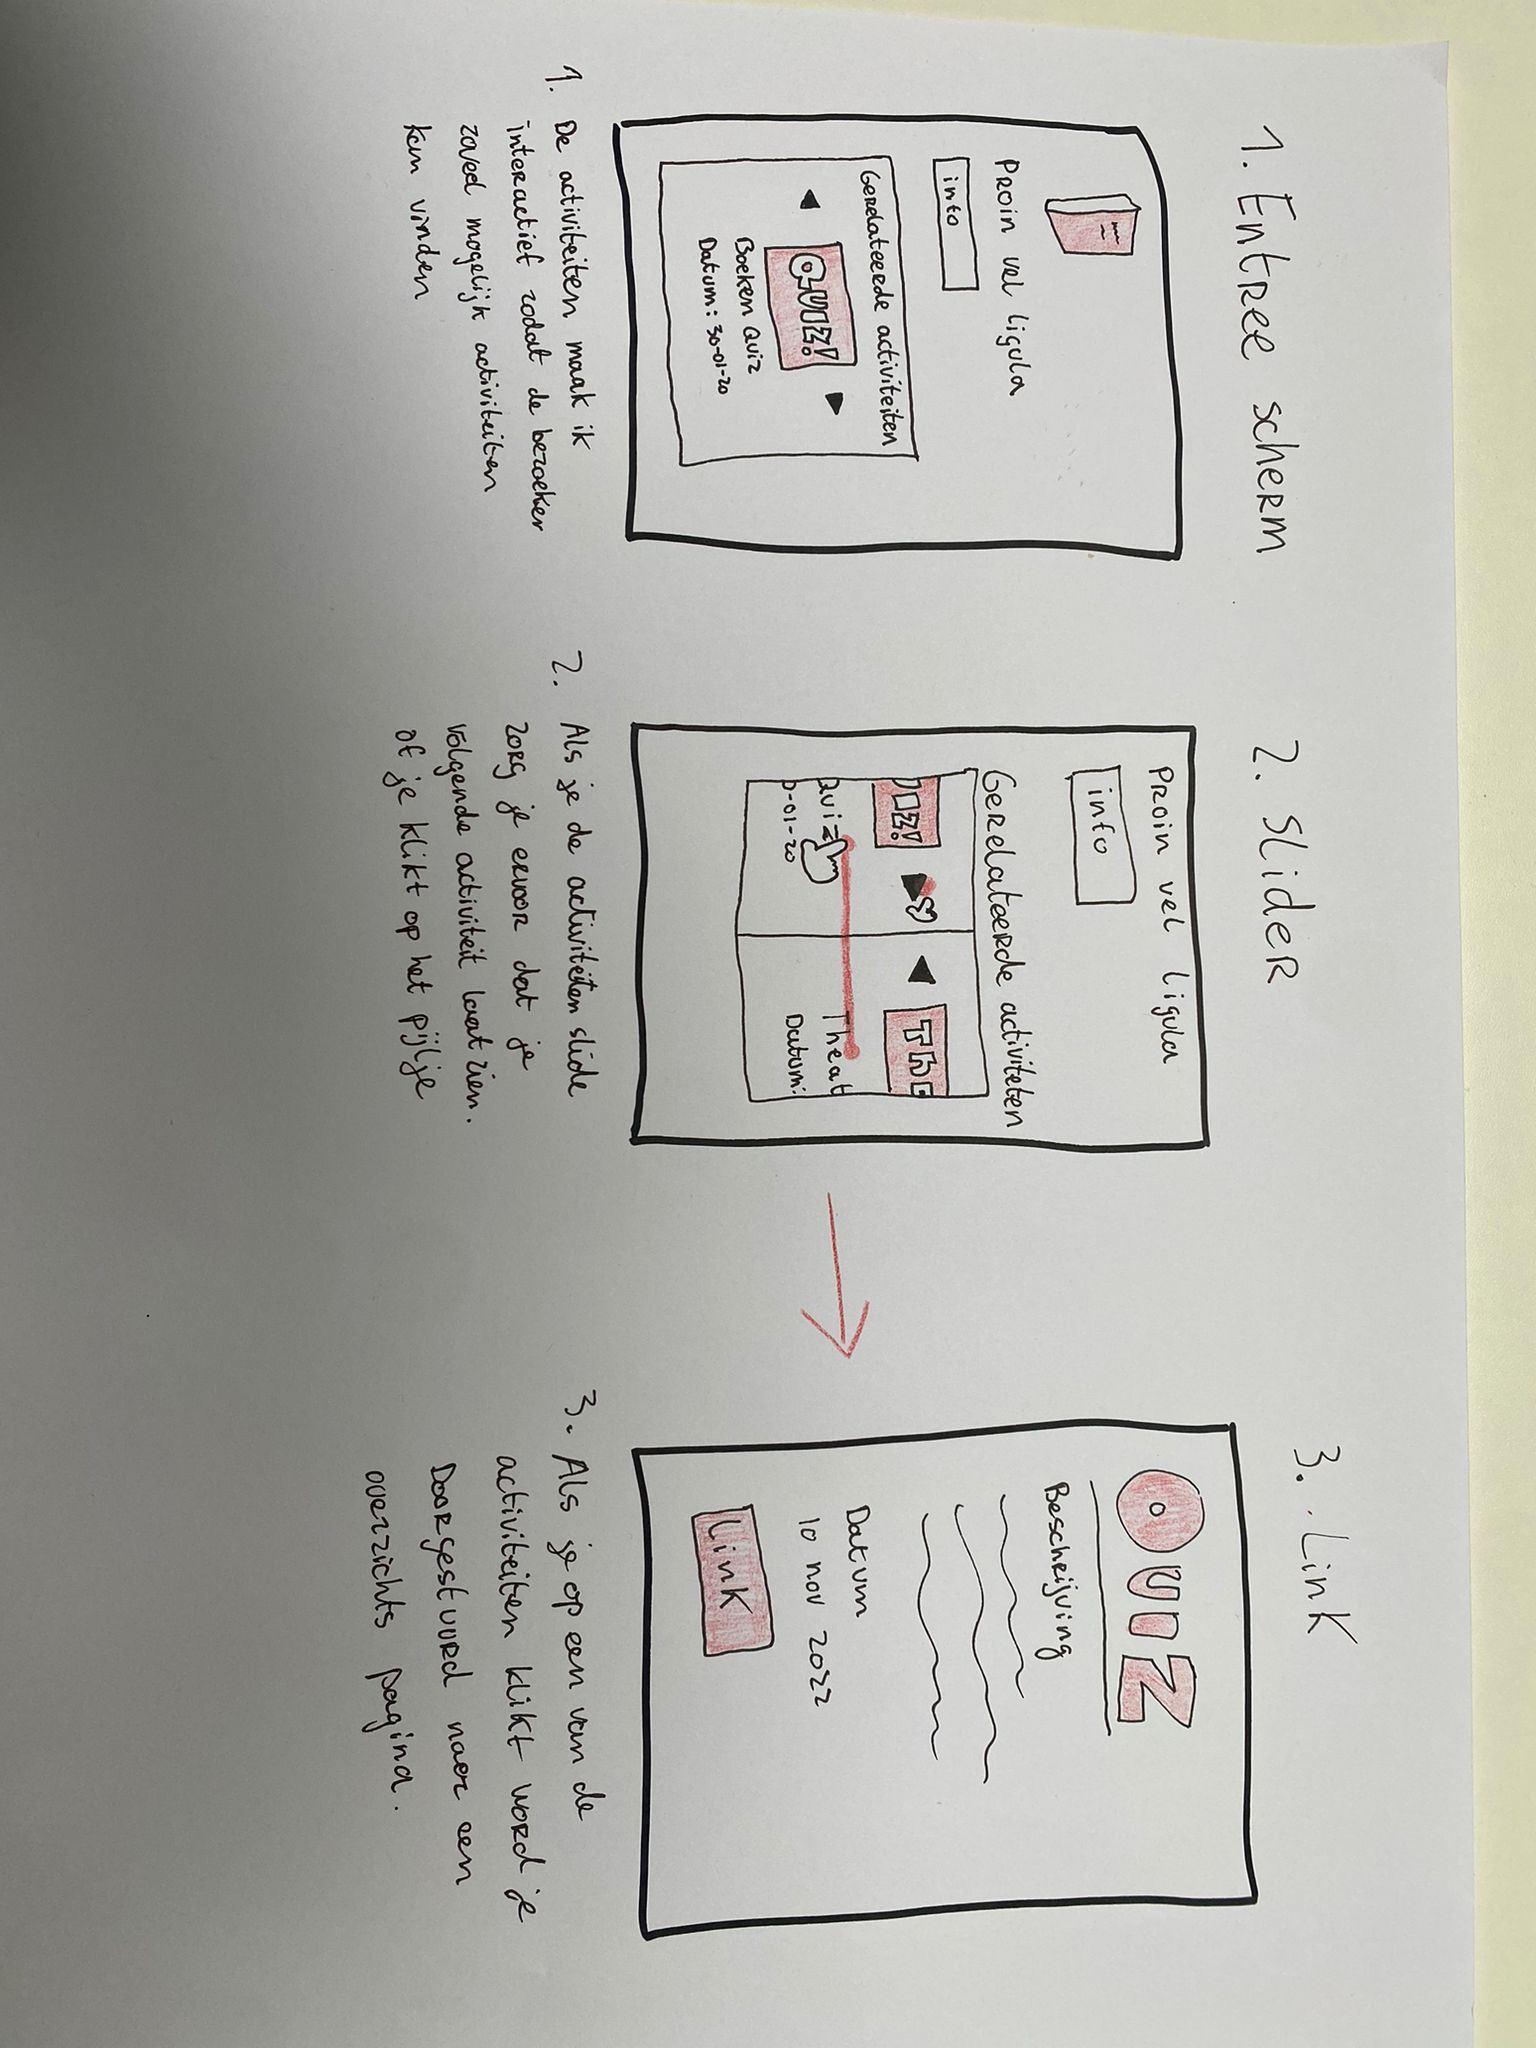 1. Entree scherm
Proin vel ligula
info
Gerelateerde activiteiten
QUIZ!
Boeken Quiz
Datum: 30-01-20
1. De activiteiten maak ik
interactief zodat de bezoeker
zoveel mogelijk activiteiten
kan vinden
2. Slider
Proin vel ligula
info
Gerelateerde activiteiten
UIZ!
THE
Quiz
Theat
0-01-20
Datum:
2. Als je de activiteiten slide
zorg je ervoor dat je
volgende activiteit laat zien.
of je klikt op het pijltje
3. Link
QUIZ
Beschrijving
Datum
10 nov 2022
Link
3. Als je op een van de
activiteiten klikt word je
Doorgestuurd naar een
overzichts pagina.